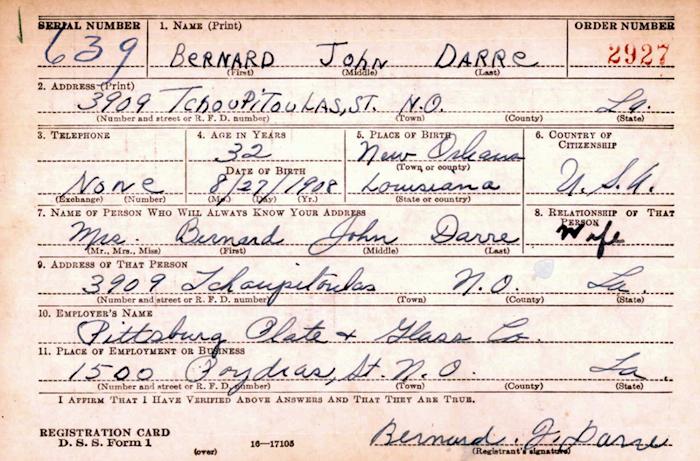 SERIAL NUMBER 1. NAME (Print) ORDER NUMBER
639 BERNARD JOHN DARRE 2927
(First) (Middle) (Last)
2. ADDRESS (Print)
3909 TCHOUPITOULAS, ST. N.O. La.
(Number and street or R. F. D. number) (Town) (County) (State)
3. TELEPHONE 4. AGE IN YEARS 5. PLACE OF BIRTH 6. COUNTRY OF CITIZENSHIP
32 New Orleans
DATE OF BIRTH (Town or county)
None 8/27/1908 Louisiana U.S.A.
(Exchange) (Number) (Mo.) (Day) (Yr.) (State or country)
7. NAME OF PERSON WHO WILL ALWAYS KNOW YOUR ADDRESS 8. RELATIONSHIP OF THAT PERSON
Mrs. Bernard John Darre Wife
(Mr., Mrs., Miss) (First) (Middle) (Last)
9. ADDRESS OF THAT PERSON
3909 Tchoupitoulas N.O. La.
(Number and street or R. F. D. number) (Town) (County) (State)
10. EMPLOYER'S NAME
Pittsburg Plate + Glass Co.
11. PLACE OF EMPLOYMENT OR BUSINESS
1500 Poydras, St. N.O. La.
(Number and street or R. F. D. number) (Town) (County) (State)
I AFFIRM THAT I HAVE VERIFIED ABOVE ANSWERS AND THAT THEY ARE TRUE.
REGISTRATION CARD
D. S. S. Form 1 (over) 16—17105 Bernard. J. Darre
(Registrant's signature)